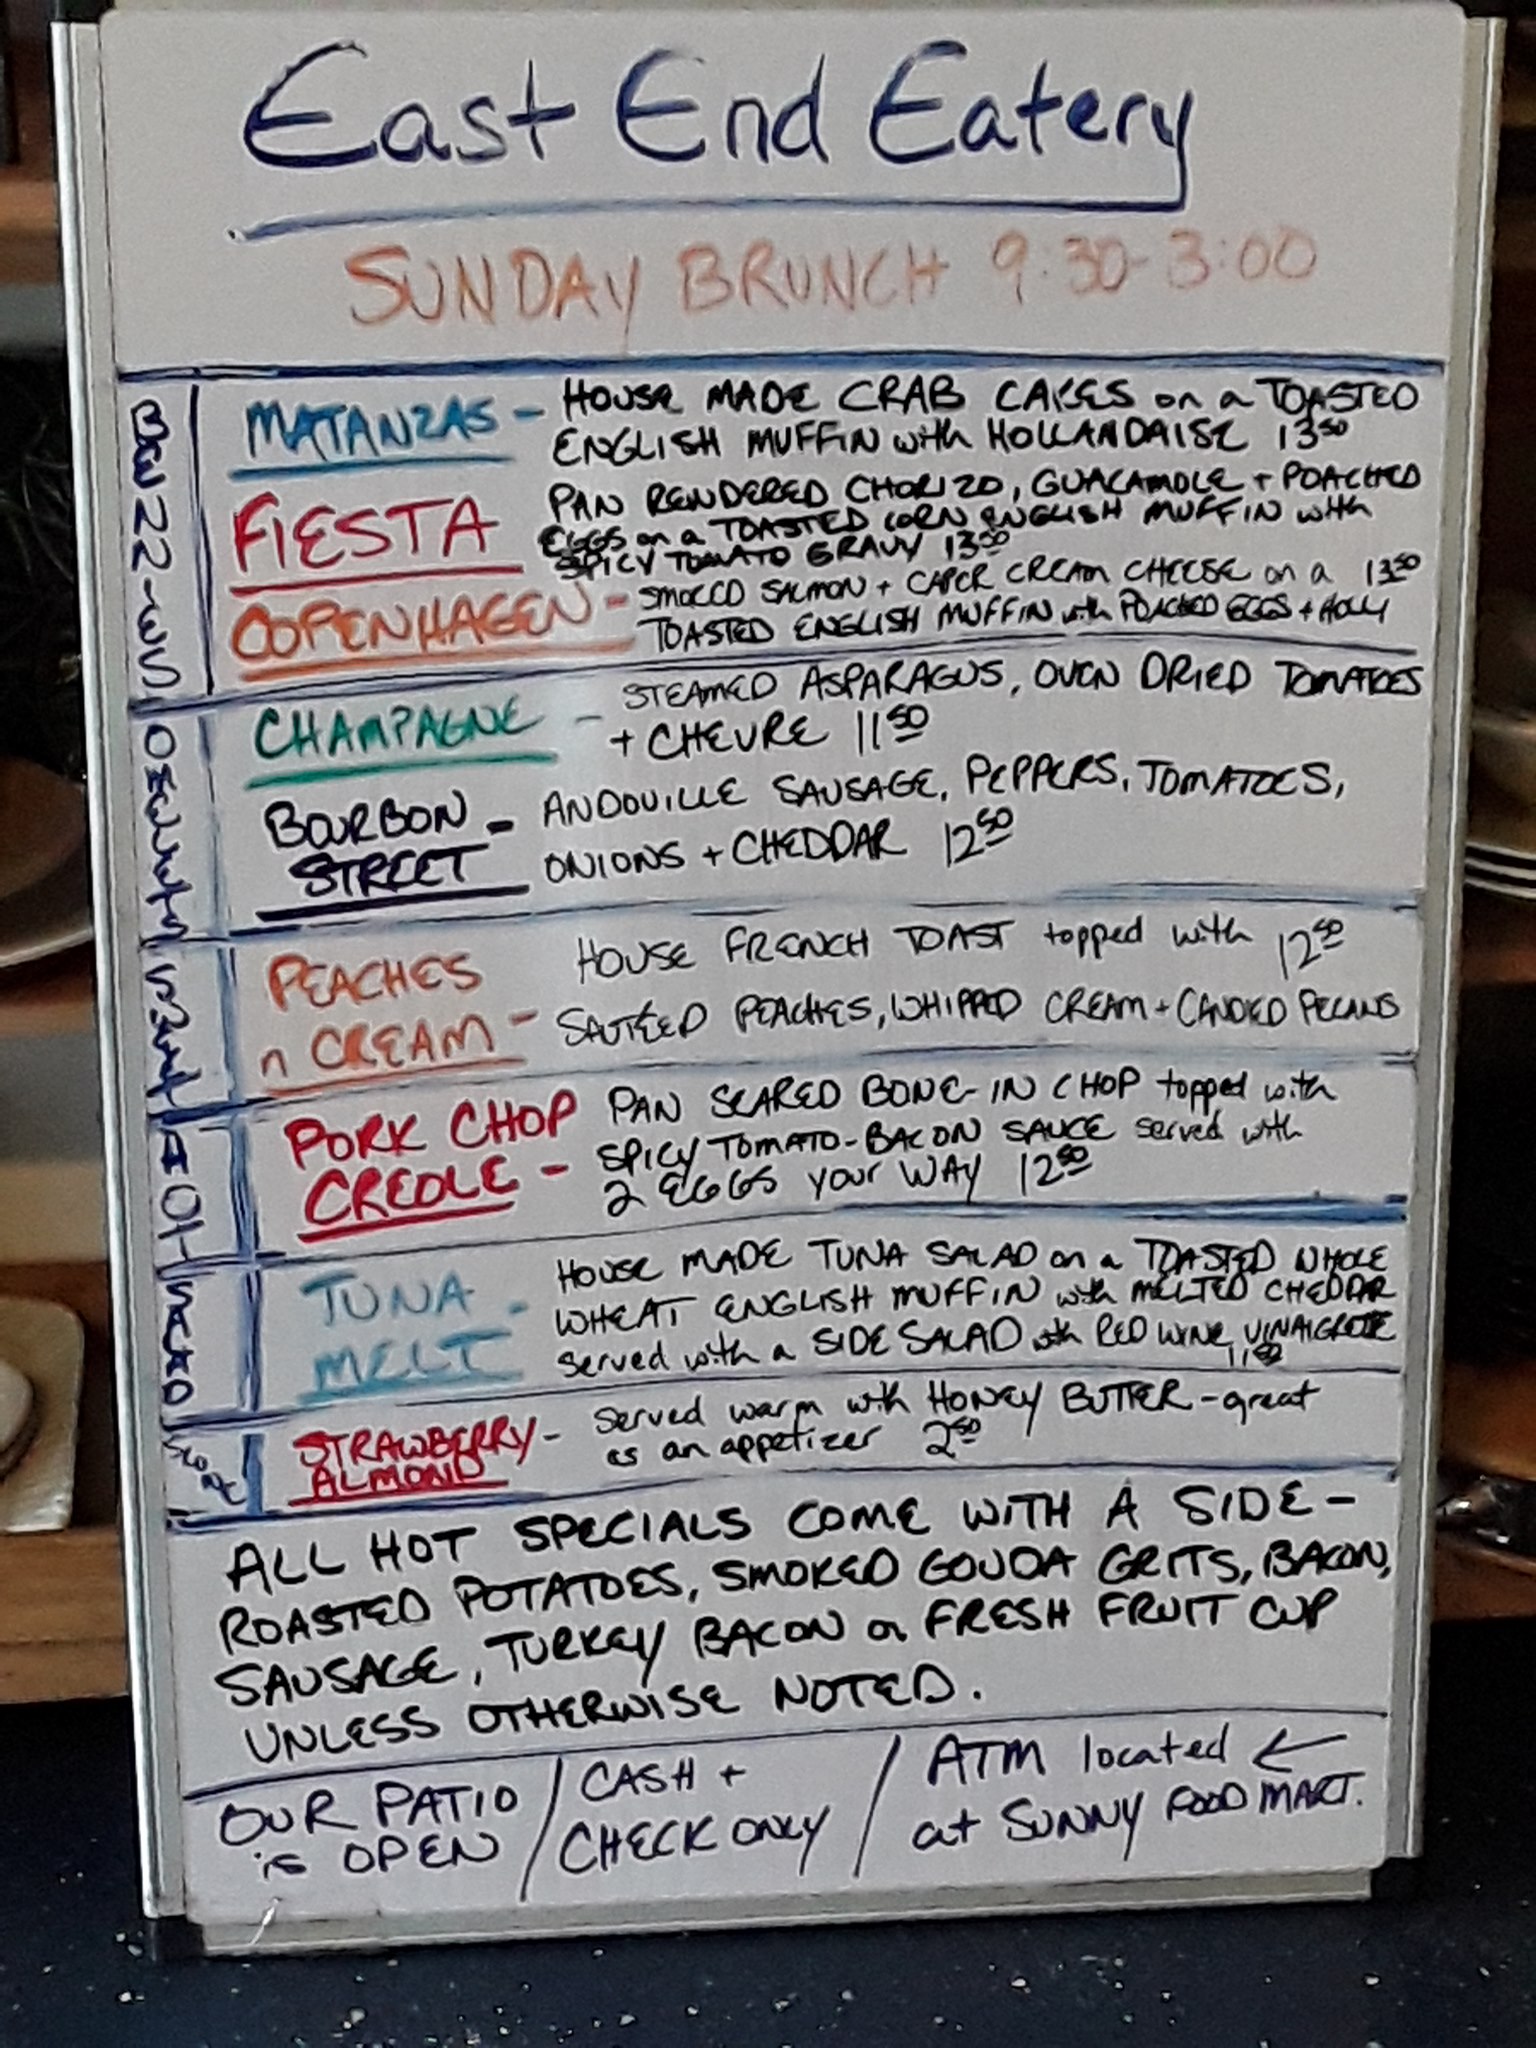 East End Eatery
SUNDAY BRUNCH 9:30-3:00
MATANZAS - HOUSE MADE CRAB CAKES on a TOASTED
ENGLISH MUFFIN with HOLLANDAISE 13.50
FIESTA PAN RENDERED CHORIZO, GUACAMOLE + POACHED
EGGS on a TOASTED CORN ENGLISH MUFFIN with
SPICY TOMATO GRAVY 13.50
COPENHAGEN - SMOKED SALMON + CAPER CREAM CHEESE on a 13.50
TOASTED ENGLISH MUFFIN with POACHED EGGS + HOLLY
CHAMPAGNE - STEAMED ASPARAGUS, OVEN DRIED TOMATOES
+ CHEVRE 11.50
BOURBON STREET - ANDOUILLE SAUSAGE, PEPPERS, TOMATOES,
ONIONS + CHEDDAR 12.50
PEACHES HOUSE FRENCH TOAST topped with 12.50
n CREAM - SAUTEED PEACHES, WHIPPED CREAM + CANDIED PECANS
PORK CHOP PAN SEARED BONE-IN CHOP topped with
CREOLE - SPICY TOMATO-BACON SAUCE served with
2 EGGS your WAY 12.50
TUNA MELT - HOUSE MADE TUNA SALAD on a TOASTED WHOLE
WHEAT ENGLISH MUFFIN with MELTED CHEDDAR
served with a SIDE SALAD with RED WINE VINAIGRETTE
11.50
STRAWBERRY - served warm with HONEY BUTTER - great
ALMOND as an appetizer 2.50
ALL HOT SPECIALS COME WITH A SIDE -
ROASTED POTATOES, SMOKED GOUDA GRITS, BACON,
SAUSAGE, TURKEY BACON or FRESH FRUIT CUP
UNLESS OTHERWISE NOTED.
OUR PATIO
is OPEN
CASH +
CHECK ONLY
ATM located ←
at SUNNY FOOD MART.